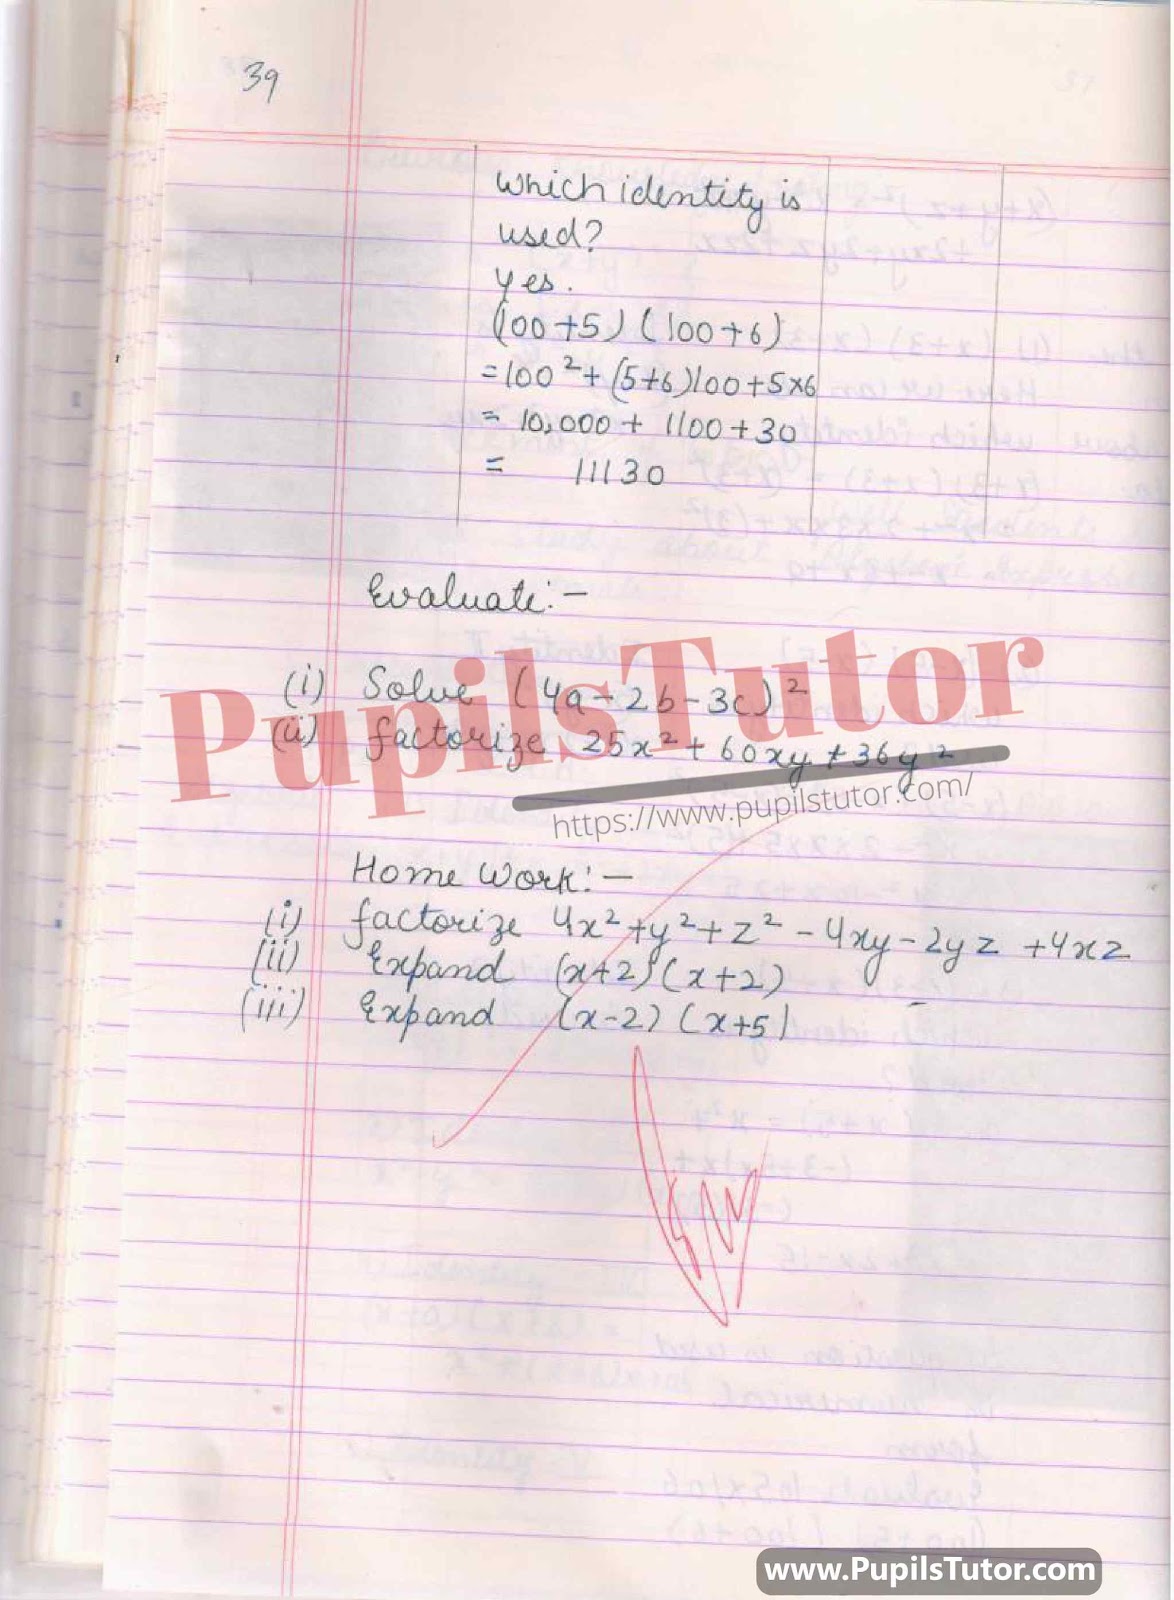 39
which identity is
used?
yes.
(100+5) (100+6)
=100²+(5+6)100+5×6
= 10,000 + 1100+30
= 11130
Evaluate:-
(i) Solve (4a-2b-3c)²
(ii) factorize 25x²+60xy+36y²
PupilsTutor
https://www.pupilstutor.com/
Home Work:-
(i) factorize 4x²+y²+z²-4xy-2yz+4xz
(ii) Expand (x+2)(x+2)
(iii) Expand (x-2)(x+5)
www.PupilsTutor.com